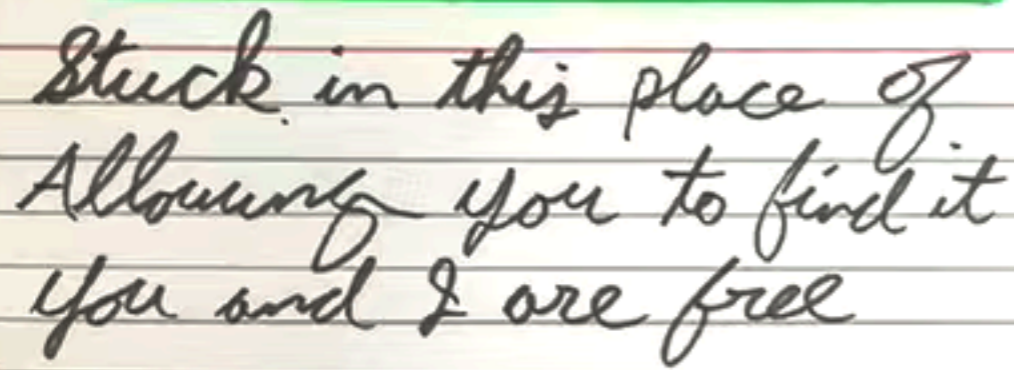 Stuck in this place of
Allowing you to find it
You and I are free